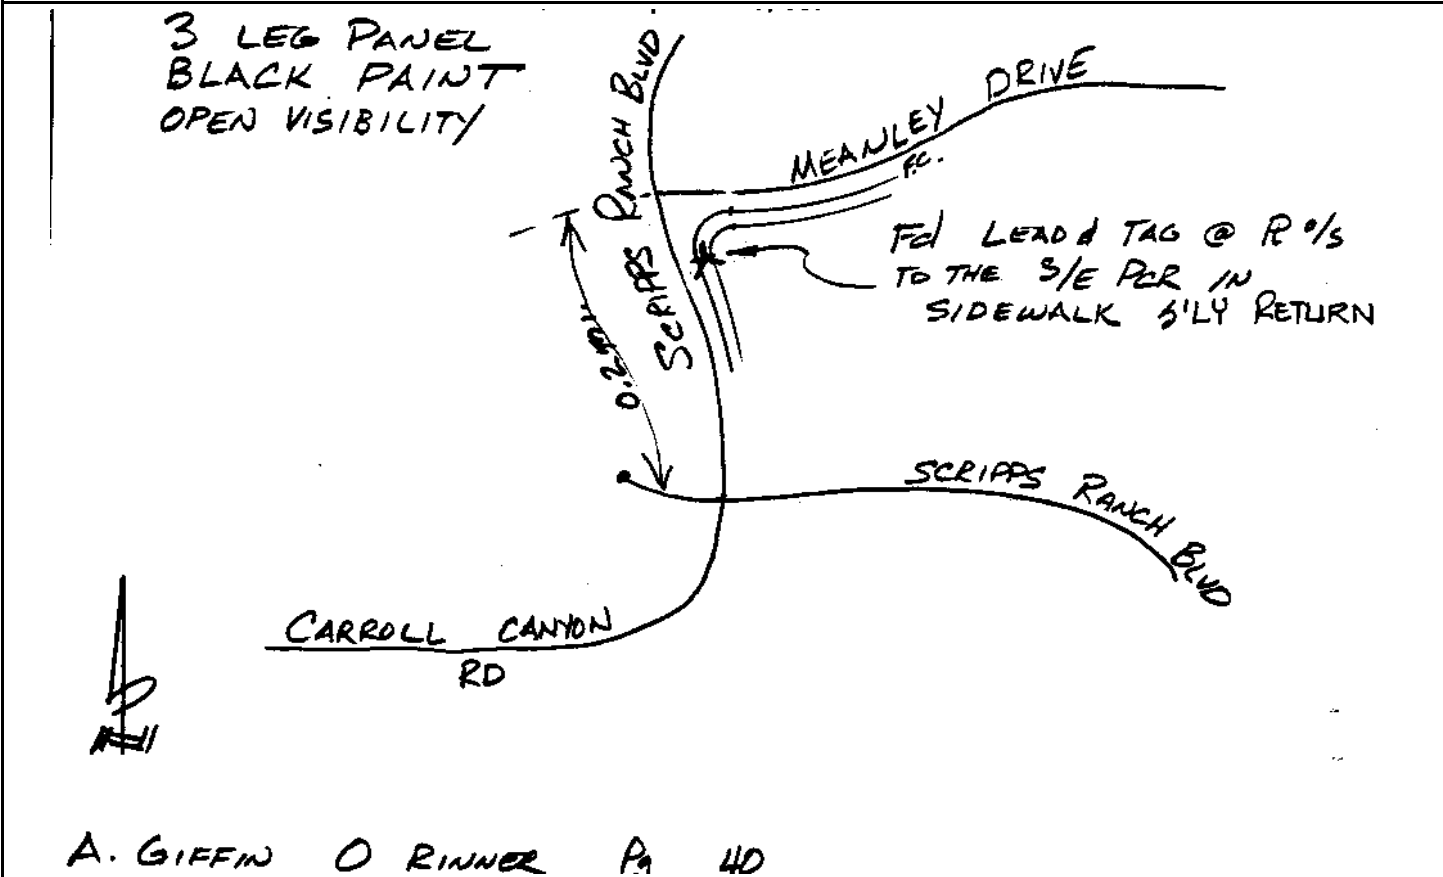 3 LEG PANEL
BLACK PAINT
OPEN VISIBILITY
SCRIPPS RANCH BLVD
MEANLEY DRIVE
F.C.
Fd LEAD & TAG @ R o/s
TO THE S/E PCR IN
SIDEWALK S'LY RETURN
0.2 mi
SCRIPPS RANCH BLVD
CARROLL CANYON
RD
A. GIFFIN O RINNER Pg 40